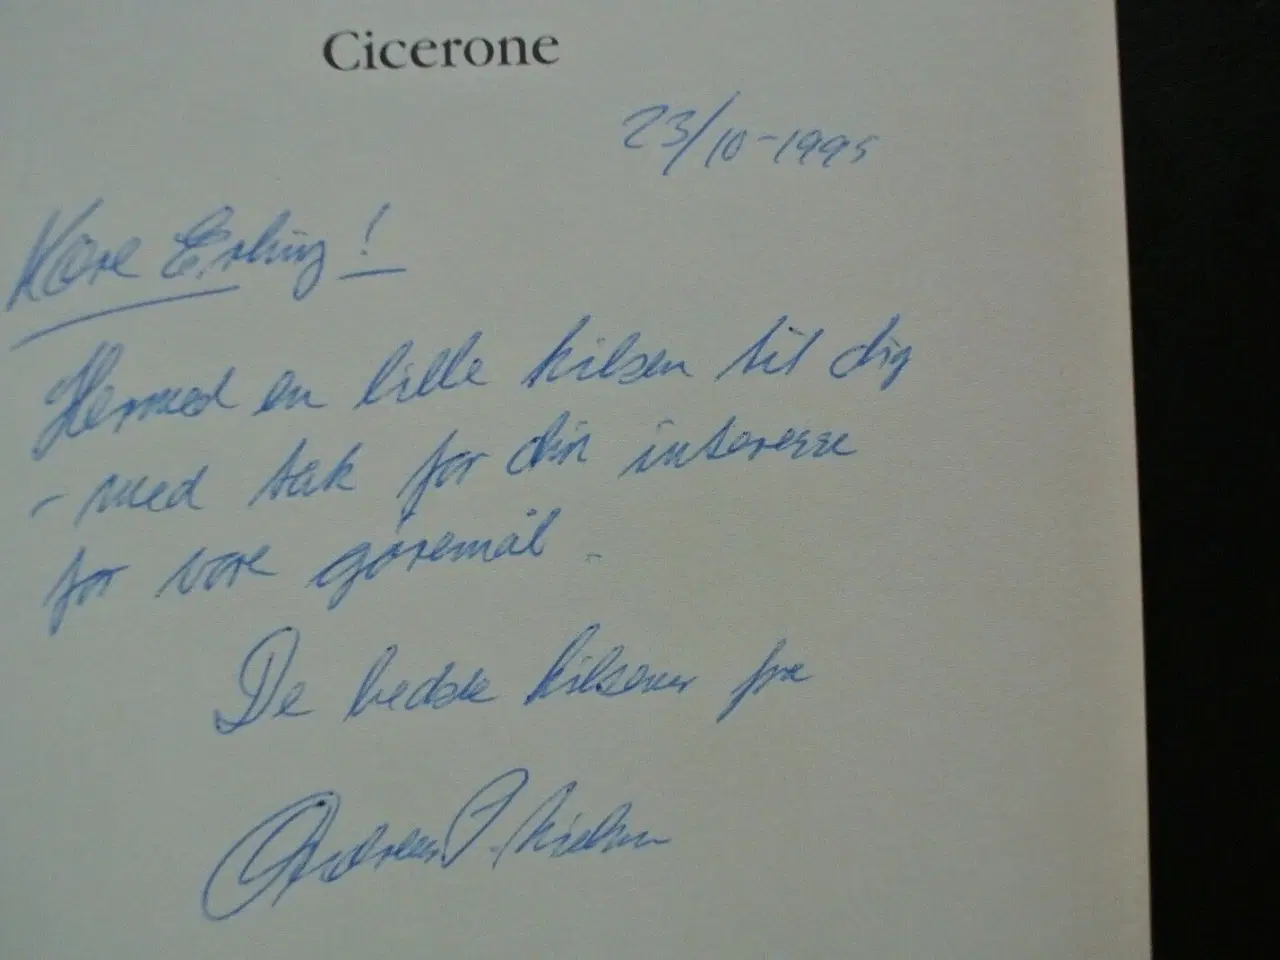 Cicerone
23/10-1995
Kære Erling!
Hermed en lille hilsen til dig
- med tak for din interesse
for vore gøremål.
De bedste hilsener fra
Andreas P. Nielsen